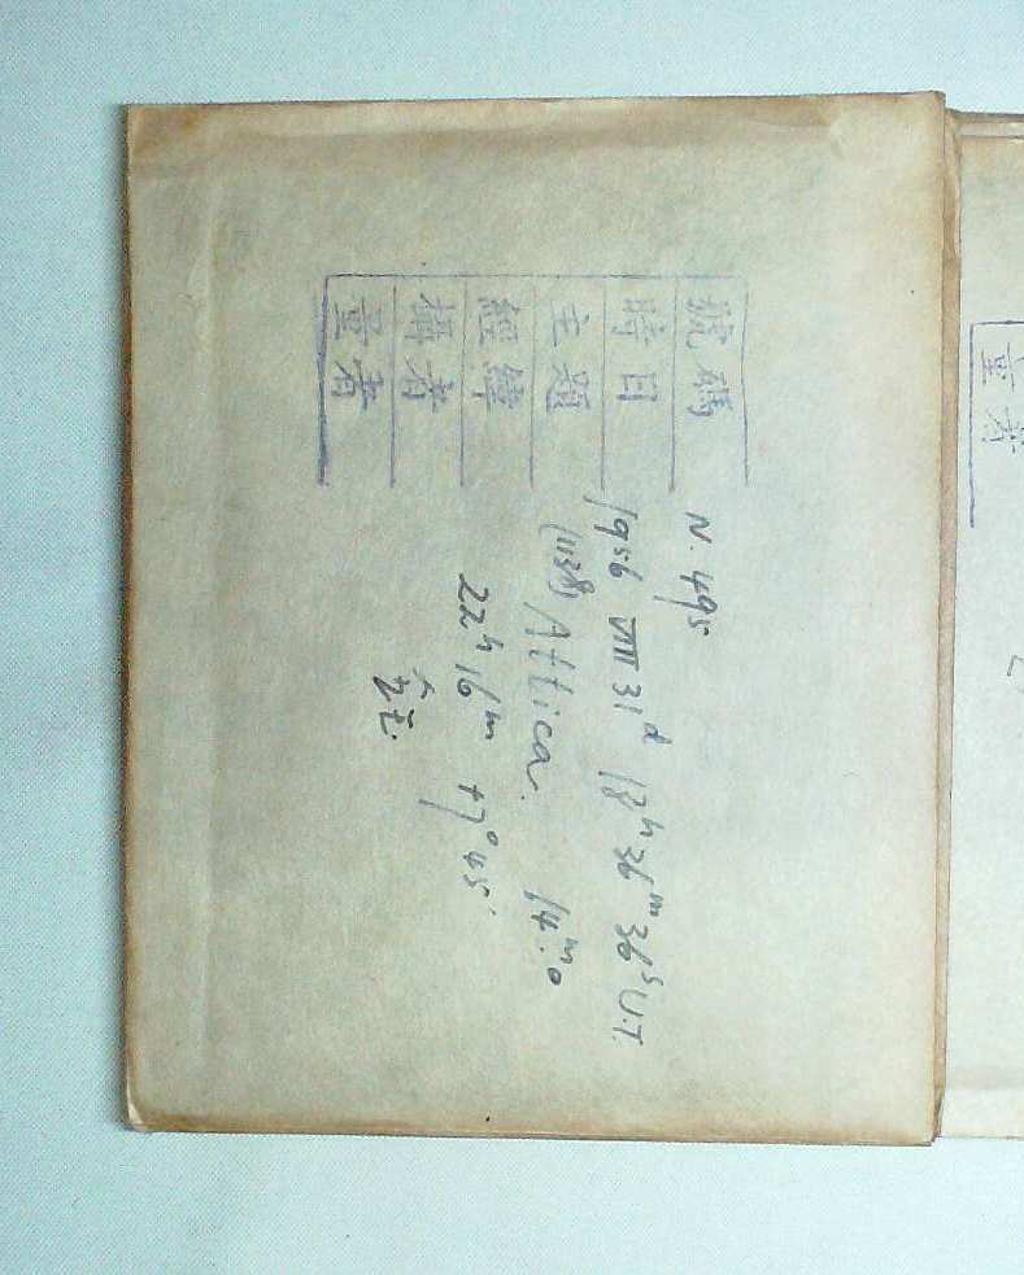 號碼 N. 495
時日 1956 VIII 31ᵈ 18ʰ 36ᵐ 36ˢ U.T
主題 (1138) Attica. 14ᵐ.0
經緯 22ʰ 16ᵐ +7° 45'
攝者
量者
量者